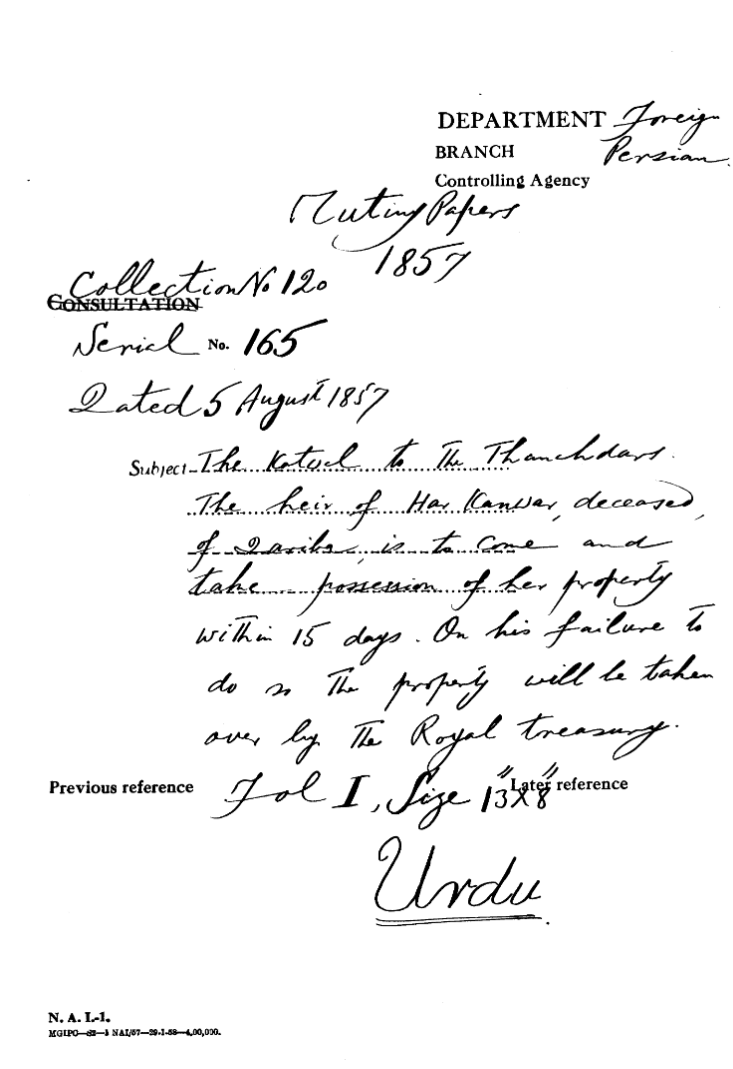 DEPARTMENT Foreign
BRANCH Persian.
Controlling Agency
Mutiny Papers
1857
Collection No 120
CONSULTATION
Serial No. 165
Dated 5 August 1857
Subject The Kotwal to The Thanehdars.
The heir of Har Kanwar, deceased,
of Dariba, is to come and
take possession of her property
within 15 days. On his failure to
do so The property will be taken
over by The Royal treasury.
Previous reference Later reference
Fol I, Size 13"X8"
Urdu.
N. A. I.-1.
MGIPC—S2—1 NAI/57—29-1-58—4,00,000.